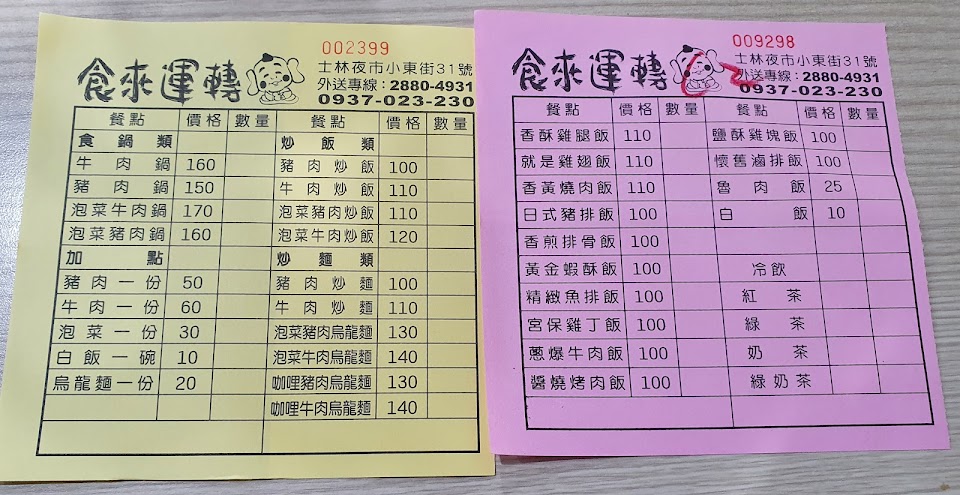 002399
食來運轉
士林夜市小東街31號
外送專線：2880-4931
0937-023-230
餐點 價格 數量 餐點 價格 數量
食鍋類 炒飯類
牛肉鍋 160 豬肉炒飯 100
豬肉鍋 150 牛肉炒飯 110
泡菜牛肉鍋 170 泡菜豬肉炒飯 110
泡菜豬肉鍋 160 泡菜牛肉炒飯 120
加點 炒麵類
豬肉一份 50 豬肉炒麵 100
牛肉一份 60 牛肉炒麵 110
泡菜一份 30 泡菜豬肉烏龍麵 130
白飯一碗 10 泡菜牛肉烏龍麵 140
烏龍麵一份 20 咖哩豬肉烏龍麵 130
咖哩牛肉烏龍麵 140
009298
食來運轉
士林夜市小東街31號
外送專線：2880-4931
0937-023-230
餐點 價格 數量 餐點 價格 數量
香酥雞腿飯 110 鹽酥雞塊飯 100
就是雞翅飯 110 懷舊滷排飯 100
香黃燒肉飯 110 魯肉飯 25
日式豬排飯 100 白飯 10
香煎排骨飯 100
黃金蝦酥飯 100 冷飲
精緻魚排飯 100 紅茶
宮保雞丁飯 100 綠茶
蔥爆牛肉飯 100 奶茶
醬燒烤肉飯 100 綠奶茶